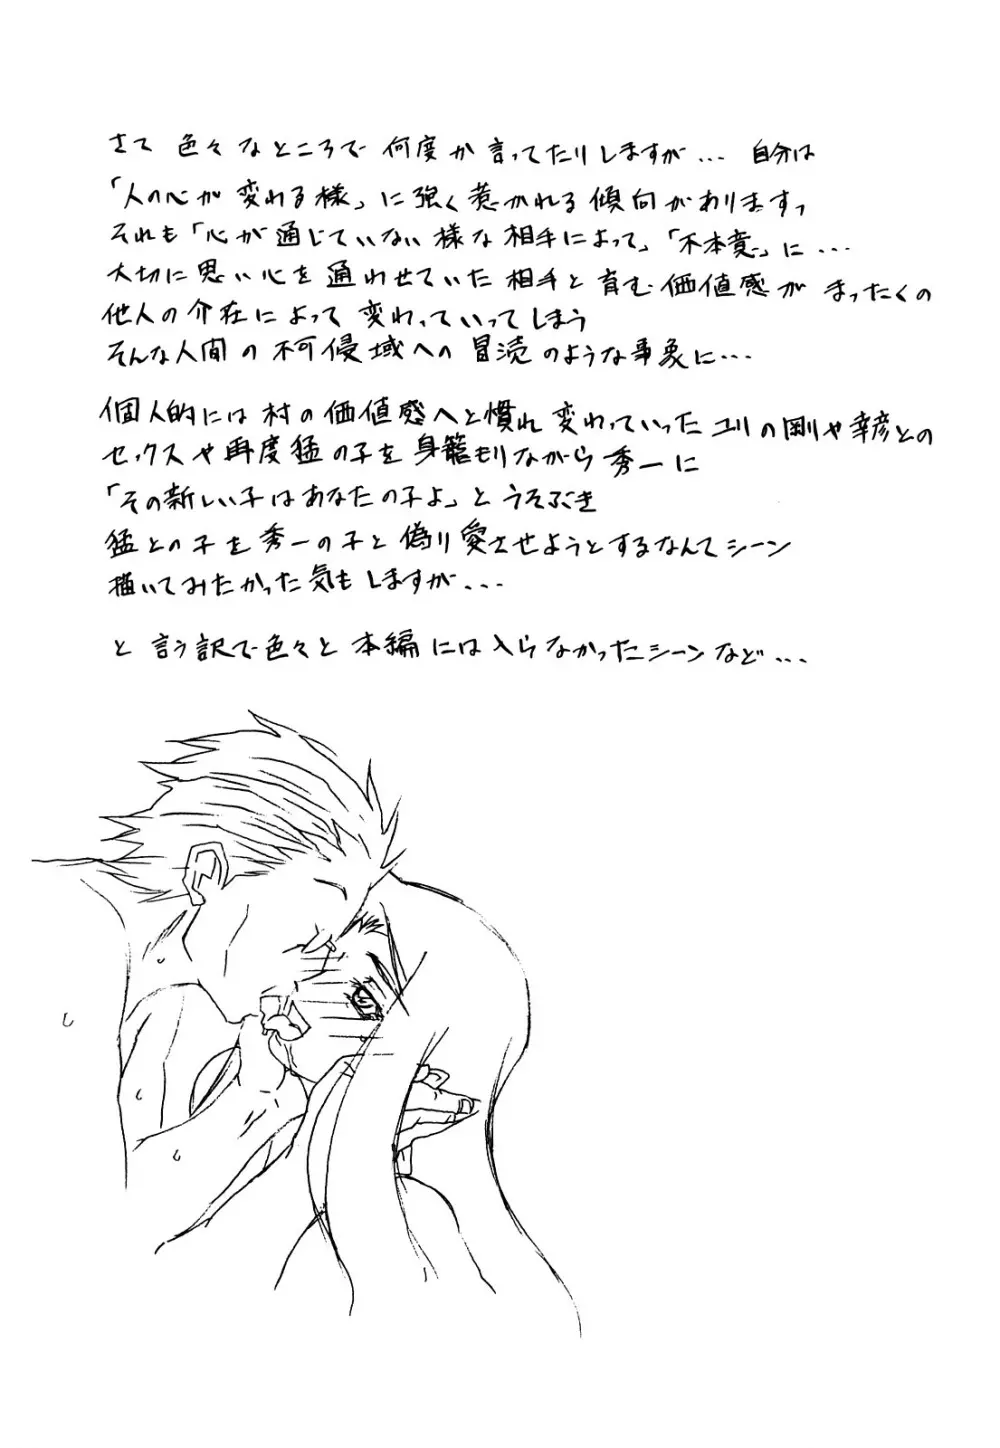 さて 色々なところで 何度か 言ってたりしますが... 自分は
「人の心が 変わる様」に強く惹かれる傾向がありますっ
それも「心が通じていない様な相手によって」「不本意」に...
大切に思い心を通わせていた相手と育む価値感が まったくの
他人の介在によって変わっていってしまう
そんな人間の不可侵域への冒涜のような事象に...
個人的には村の価値感へと慣れ変わっていったユリの剛や幸彦との
セックスや再度猛の子を身籠もりながら秀一に
「その新しい子はあなたの子よ」とうそぶき
猛との子を秀一の子と偽り愛させようとするなんてシーン
描いてみたかった気もしますが...
と言う訳で色々と本編には入らなかったシーンなど...